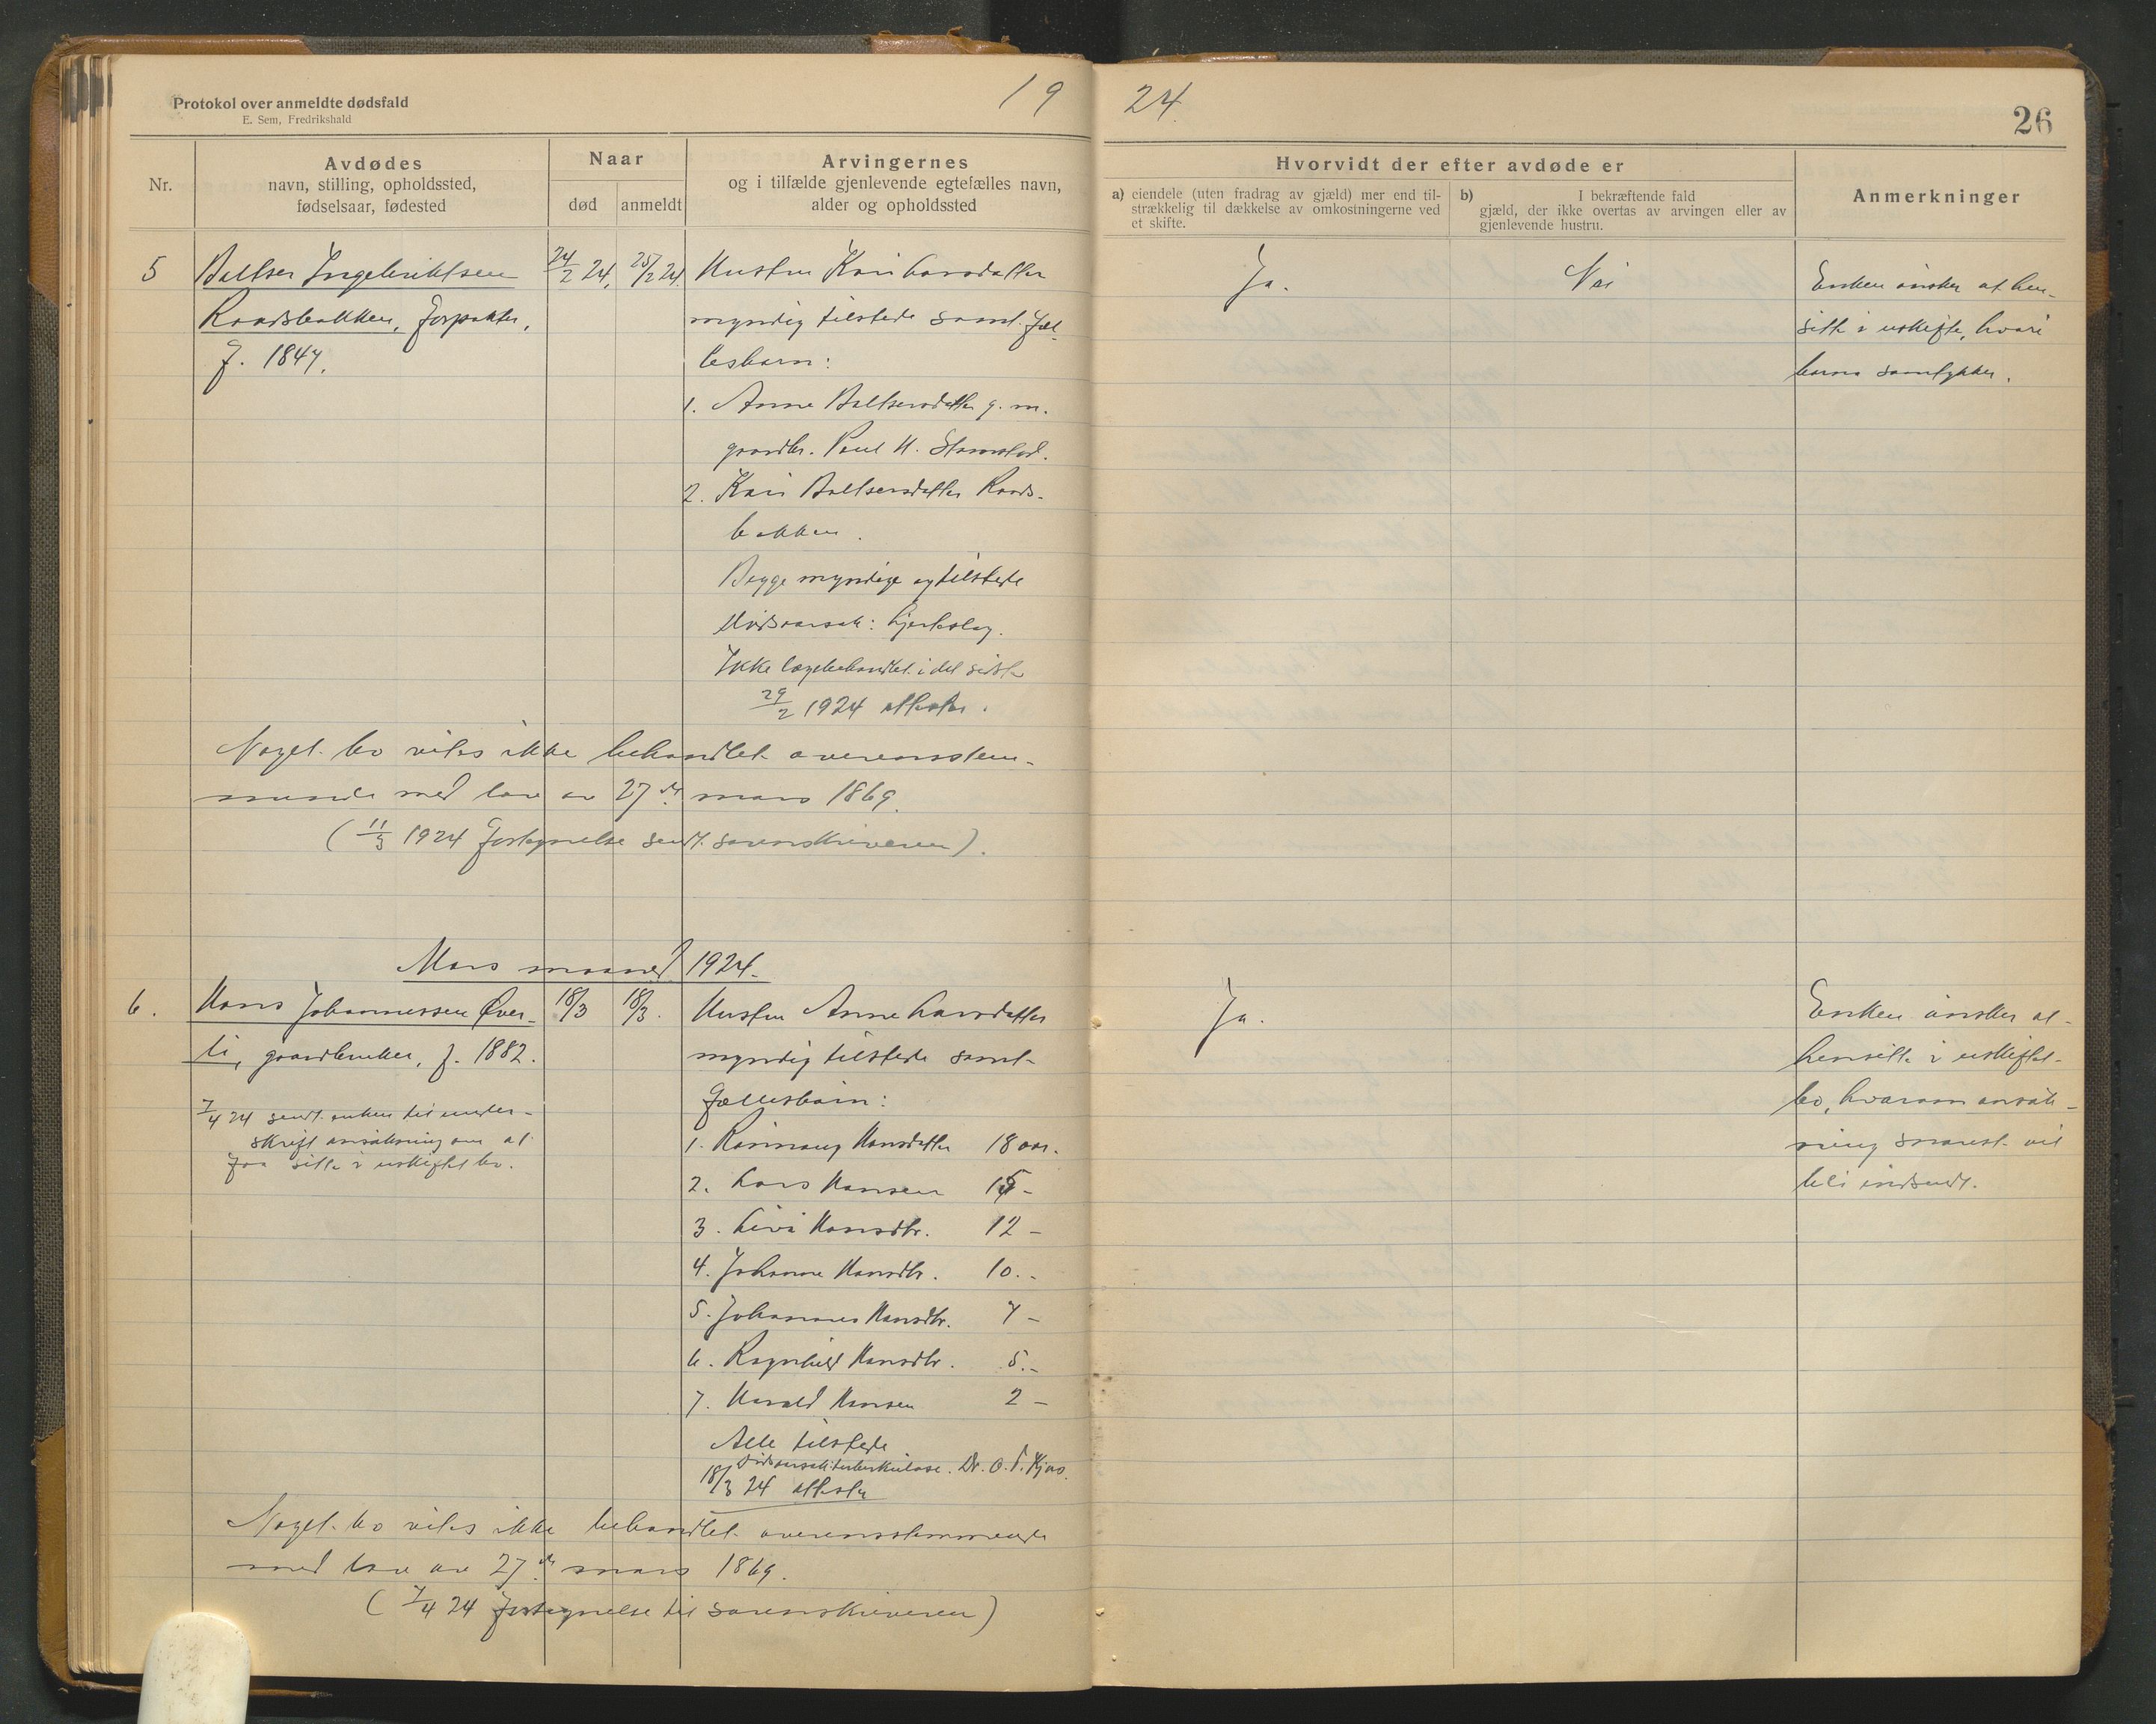 Protokol over anmeldte dødsfald
E. Sem, Fredrikshald
19 24.
26
Nr.
Avdødes
navn, stilling, opholdssted,
fødselsaar, fødested
Naar
død
anmeldt
Arvingernes
og i tilfælde gjenlevende egtefælles navn,
alder og opholdssted
Hvorvidt der efter avdøde er
a) eiendele (uten fradrag av gjæld) mer end til-
strækkelig til dækkelse av omkostningerne ved
et skifte.
b) I bekræftende fald
gjæld, der ikke overtas av arvingen eller av
gjenlevende hustru.
Anmerkninger
5
Baltser Ingebriktsen
Raadsbakken, forpakter,
f. 1847.
24/2 24,
25/2 24.
Hustru Kari Larsdatter
myndig tilstede samt fæl-
lesbarn:
1. Anne Baltsersdatter g. m.
gaardbr. Paul H. Stamstad.
2. Kari Baltsersdatter Raads-
bakken.
Begge myndige og tilstede
Dødsaarsak: hjerteslag.
Ikke lægebehandlet i det sidste
29/2 1924 attester.
Ja.
Nei
Enken ønsker at hen-
sitte i uskifte, hvori
barna samtykker.
Noget bo vites ikke behandlet overensstem-
mende med lov av 27de mars 1869.
(11/3 1924 fortegnelse sendt sorenskriveren).
Mars maaned 1924.
6.
Hans Johannessen Øver-
li, gaardbruker, f. 1882.
18/3
18/3.
Hustru Anne Larsdatter
myndig tilstede samt
fællesbarn:
1. Rønnaug Hansdatter 18 aar.
2. Lars Hansen 15 -
3. Livi Hansdtr. 12 -
4. Johanne Hansdtr. 10. -
5. Johannes Hansdtr. 7 -
6. Ragnhild Hansdtr. 5. -
7. Harald Hansen 2 -
Alle tilstede
Dødsaarsak: tuberkulose. Dr. O. T. Kjos.
18/3 24 attester
7/4 24 sendt enken til under-
skrift ansøkning om at
faa sitte i uskiftet bo.
Ja.
Enken ønsker at
hensitte i uskiftet
bo, hvorom ansøk-
ning snarest vil
bli indsendt.
Noget bo vites ikke behandlet overensstemmende
med lov av 27de mars 1869.
(7/4 24 fortegnelse til sorenskriveren)